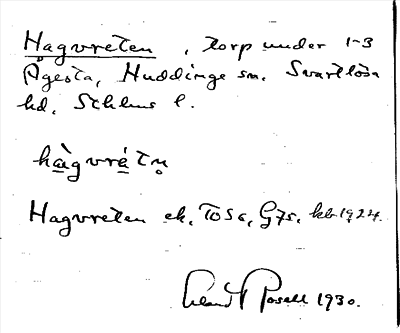 Hagvreten, torp under 1-3
Ågesta, Huddinge sn. Svartlösa
hd. Sthlms l.
hàgvré̀tn̥
Hagvreten ek. 1924.
Rosell 1930.